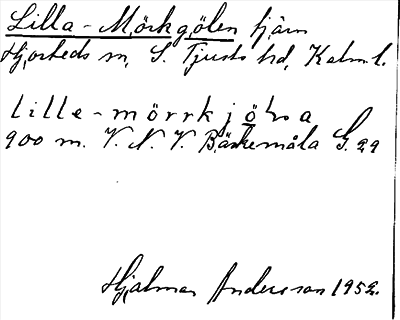 Lilla-Mörkgölen tjärn
Hjorteds sn, S. Tjusts hd, Kalm l.
lille-mörrkjölsa
900 m. V. N. V. Bäckemåla G. 29
Hjalmar Andersson 1952.